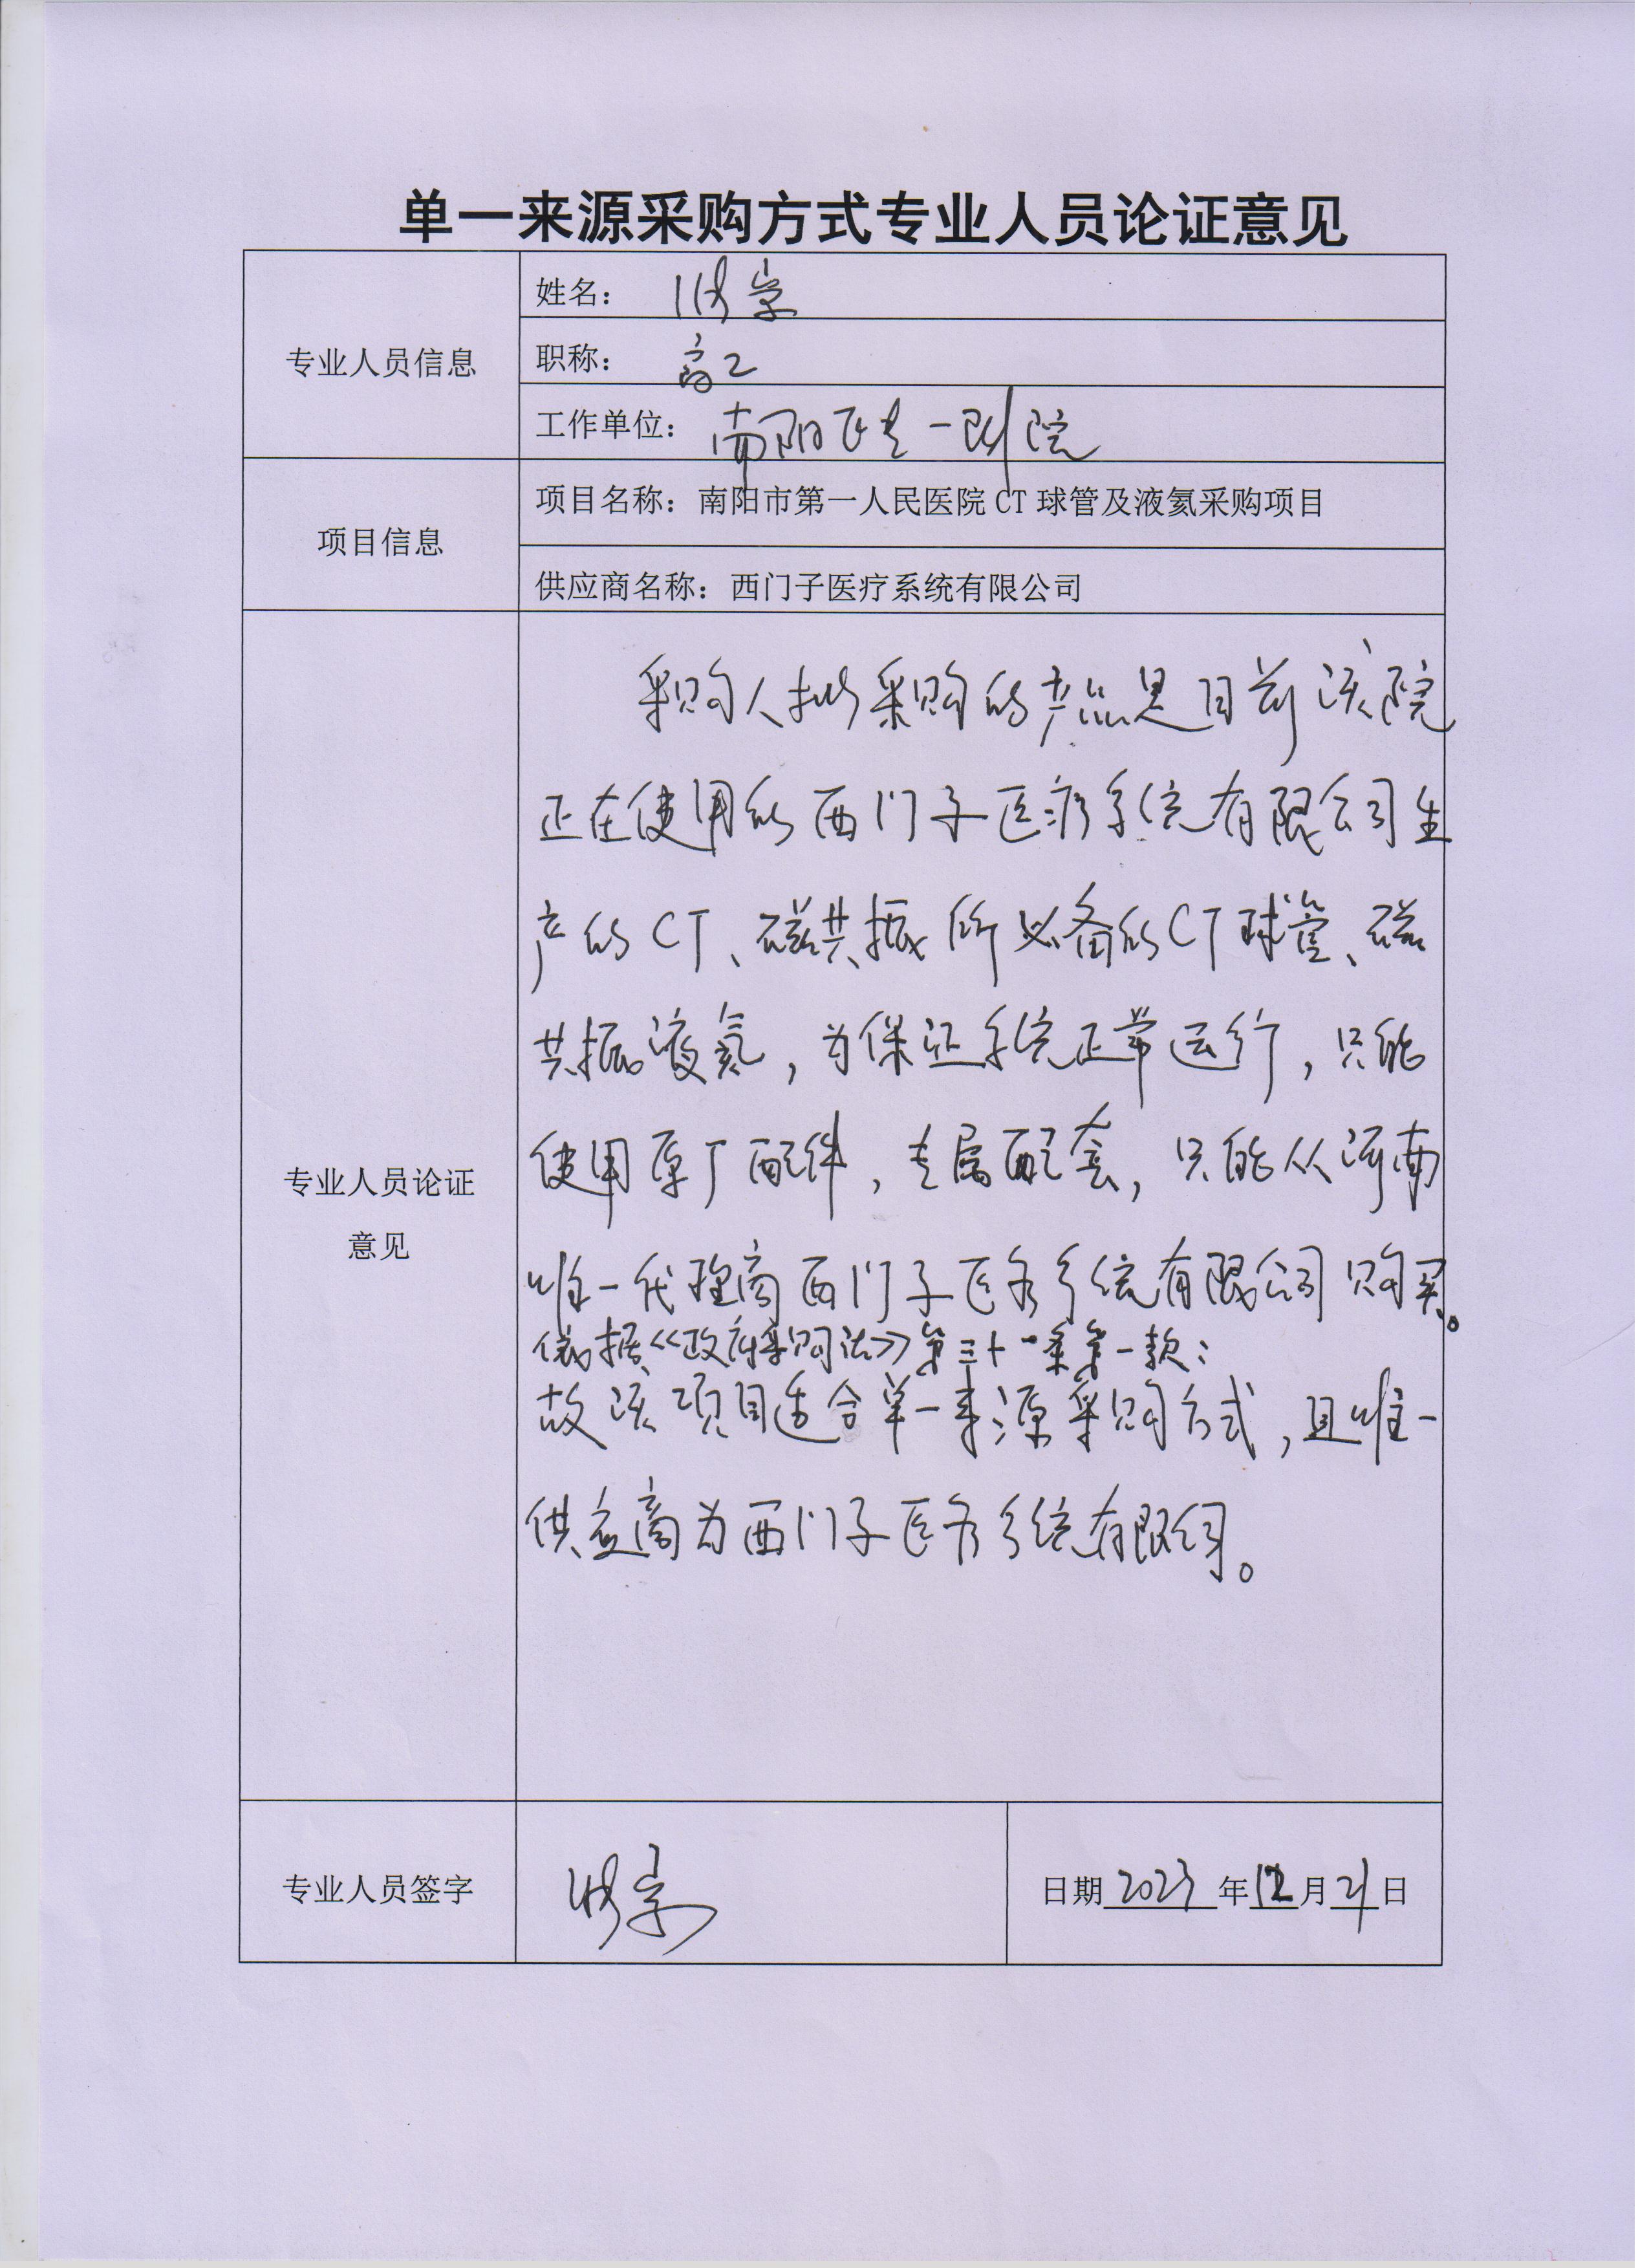 单一来源采购方式专业人员论证意见
专业人员信息
姓名：
职称：高工
工作单位：南阳医专一附院
项目信息
项目名称：南阳市第一人民医院CT球管及液氦采购项目
供应商名称：西门子医疗系统有限公司
专业人员论证
意见
采购人拟采购的产品是目前该院
正在使用的西门子医疗系统有限公司生
产的CT、磁共振所必备的CT球管、磁
共振液氦，为保证系统正常运行，只能
使用原厂配件，专属配套，只能从河南
唯一代理商西门子医疗系统有限公司购买。
依据《政府采购法》第三十一条第一款：
故该项目适合单一来源采购方式，且唯一
供应商为西门子医疗系统有限公司。
专业人员签字
日期2023年12月21日